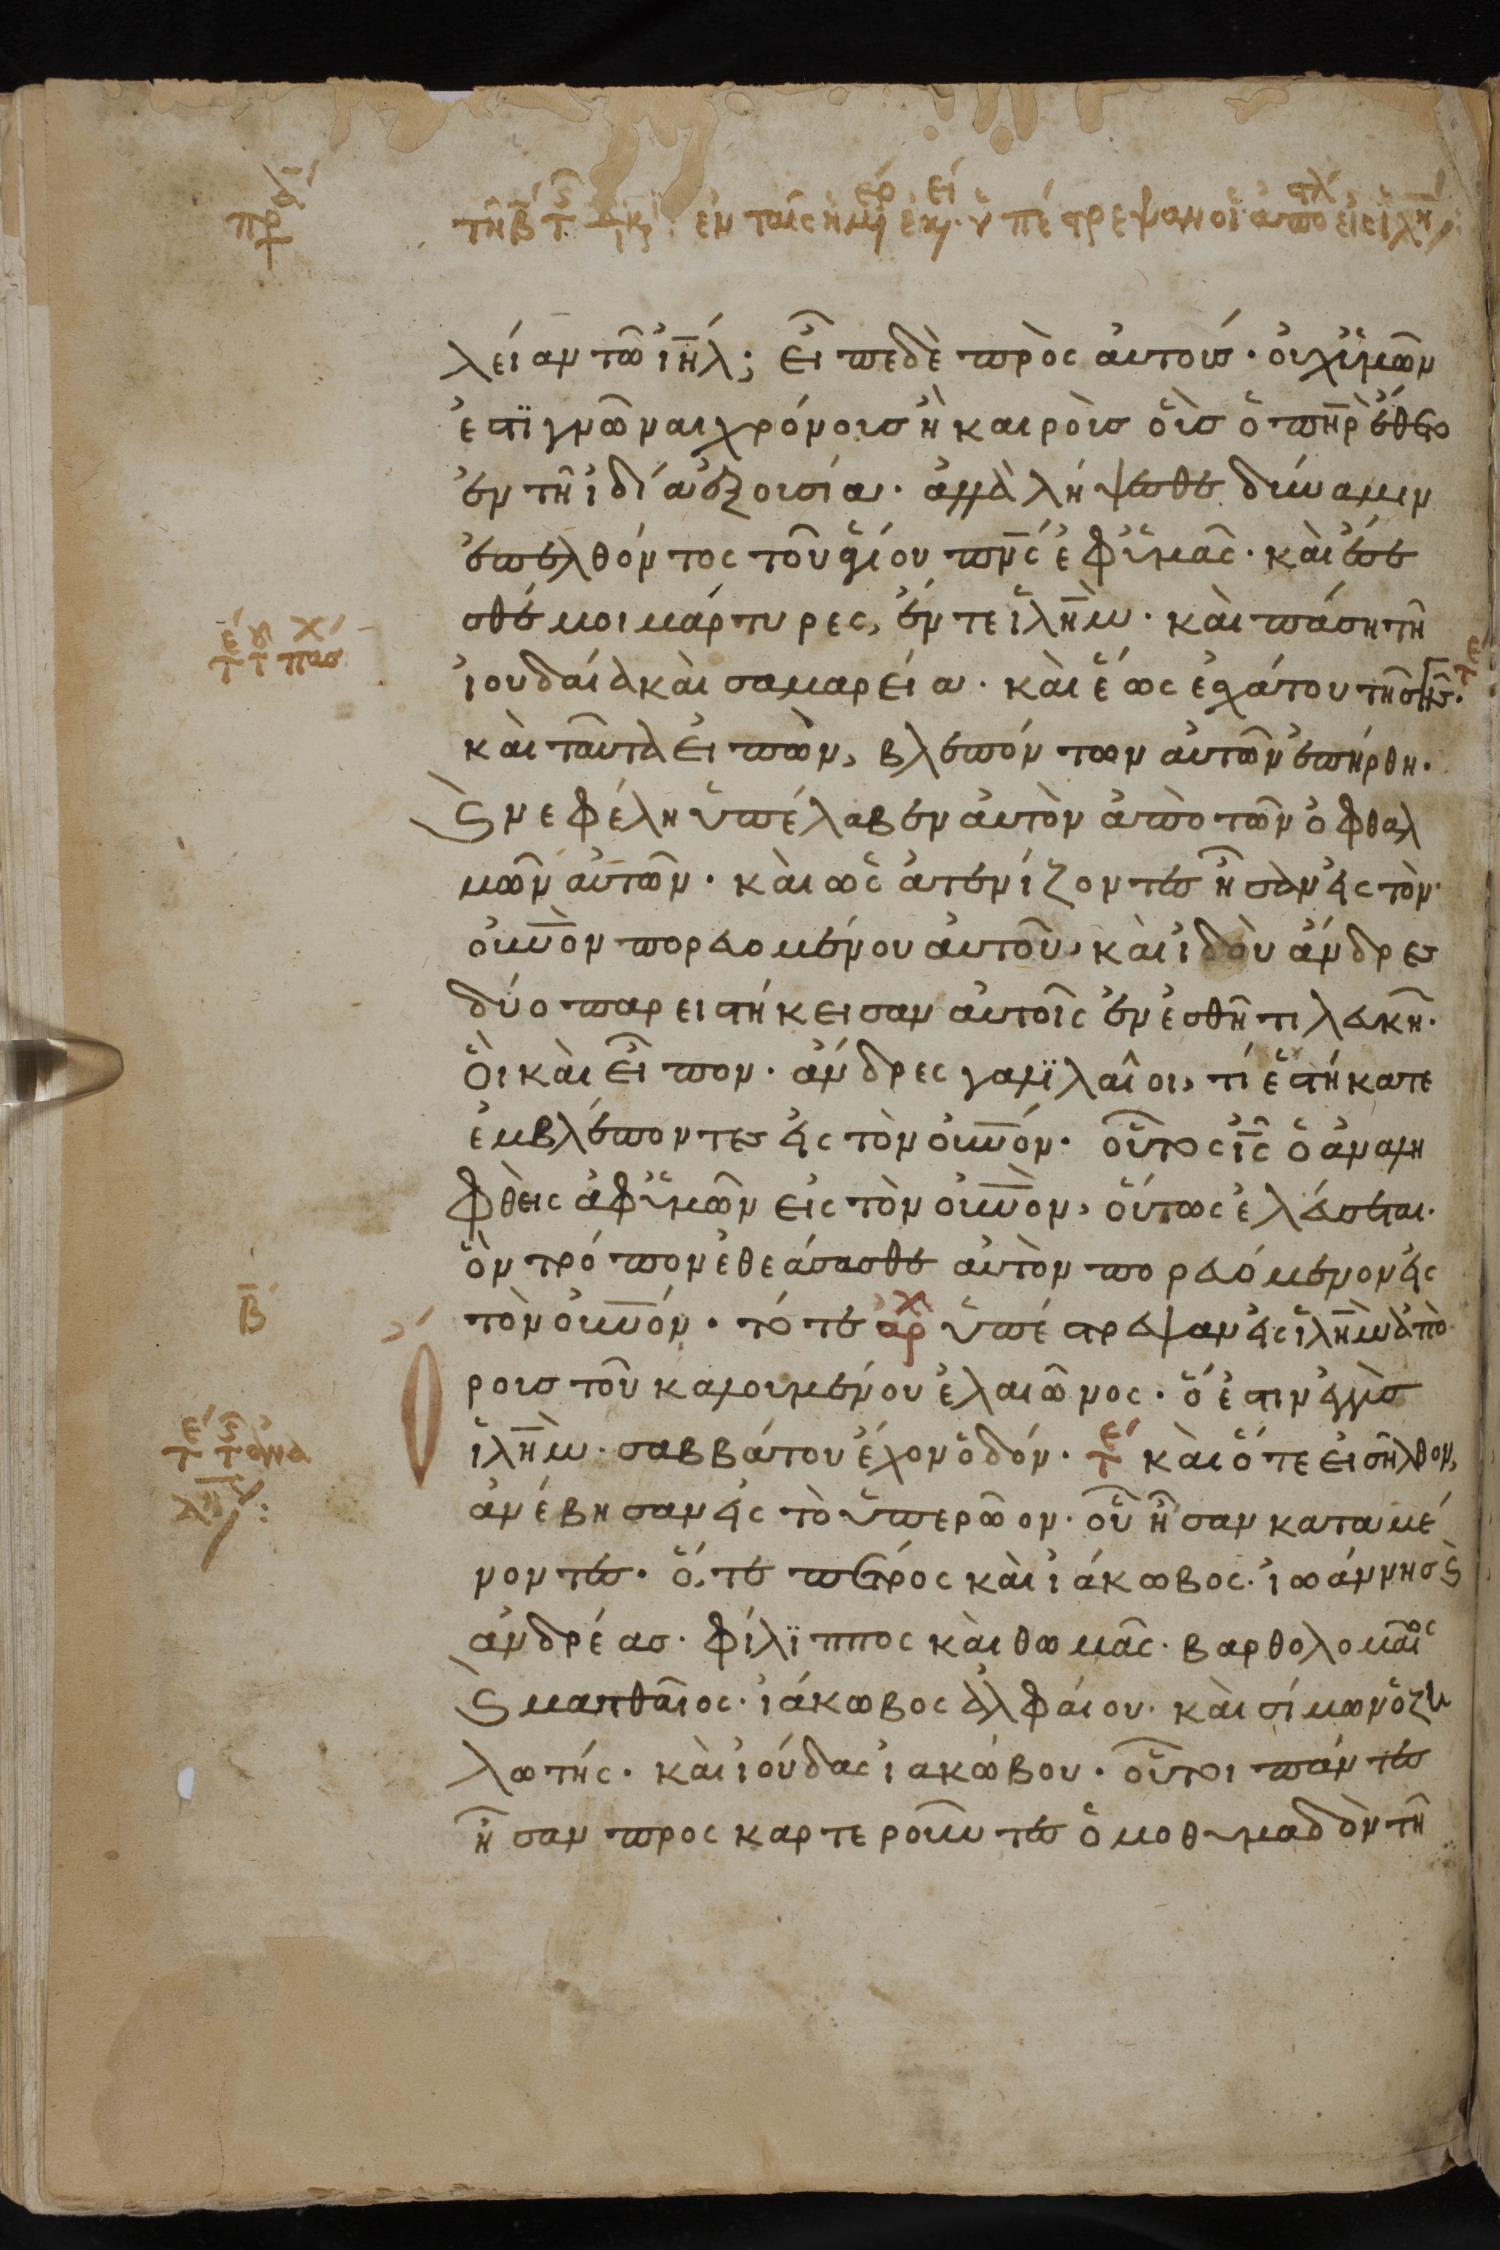 τῇ β τ ἐν ταῖς ἡμ ἐκ. ὑπέστρεψαν οἱ ἀπο εἰς ἱλημ
λείαν τῶ ἰηλ; εἶπε δὲ πρὸς αὐτούσ· οὐχ ὑμῶν
ἐστϊ γνῶναι χρόνουσ ἢ καιροὺσ οὓσ ὁ πηρ ἔθετο
ἐν τῆ ἰδία ἐξουσία· ἀλλὰ λήψεσθε δύναμιν
ἐπελθόντος τοῦ ἁγίου πνς ἐφ ὑμᾶς· καὶ ἔσε
σθέ μοι μάρτυρες, ἔν τε ἱλημ· καὶ πάση τῆ
ἰουδαία καὶ σαμαρεία· καὶ ἕως ἐσχάτου τῆσ γῆσ·
καὶ ταῦτα εἰπὼν, βλεπόντων αὐτῶν ἐπήρθη·
ϗ νεφέλη ὑπέλαβεν αὐτὸν ἀπὸ τῶν ὀφθαλ
μῶν αὐτῶν· καὶ ὡς ἀτενίζοντες ἦσαν εἰς τὸν
οὐνὸν πορευομένου αὐτοῦ, καὶ ἰδοὺ ἄνδρες
δύο παρειστήκεισαν αὐτοῖς ἐν ἐσθῆτι λευκῆ·
οἳ καὶ εἶπον· ἄνδρες γαλϊλαῖοι, τί ἑστήκατε
ἐμβλέποντες εἰς τὸν οὐνόν· οὗτος ὁ ις ὁ ἀναλη
φθεὶς ἀφ ὑμῶν εἰς τὸν οὐνὸν, οὕτως ἐλεύσεται·
ὃν τρόπον ἐθεάσασθε αὐτὸν πορευόμενον εἰς
τὸν οὐνόν· τότε αρχ ὑπέστρεψαν εἰς ἱλημ ἀπὸ
ρουσ τοῦ καλουμένου ἐλαιῶνος· ὅ ἐστιν ἐγγὺσ
ἱλημ· σαββάτου ἔχον ὁδόν· τε καὶ ὅτε εἰσῆλθον,
ἀνέβησαν εἰς τὸ ὑπερῶον· οὗ ἦσαν καταμέ
νοντες· ὅ, τε πέτρος καὶ ἰάκωβος· ἰωάννησ ϗ
ἀνδρέασ· φίλϊππος καὶ θωμᾶς· βαρθολομαῖος
ϗ ματθαῖος· ἰάκωβος ἀλφαίου· καὶ σίμων ὁ ζη
λωτής· καὶ ἰούδας ἰακώβου· οὗτοι πάντες
ἦσαν προςκαρτεροῦντες ὁμοθυμαδὸν τῆ
β